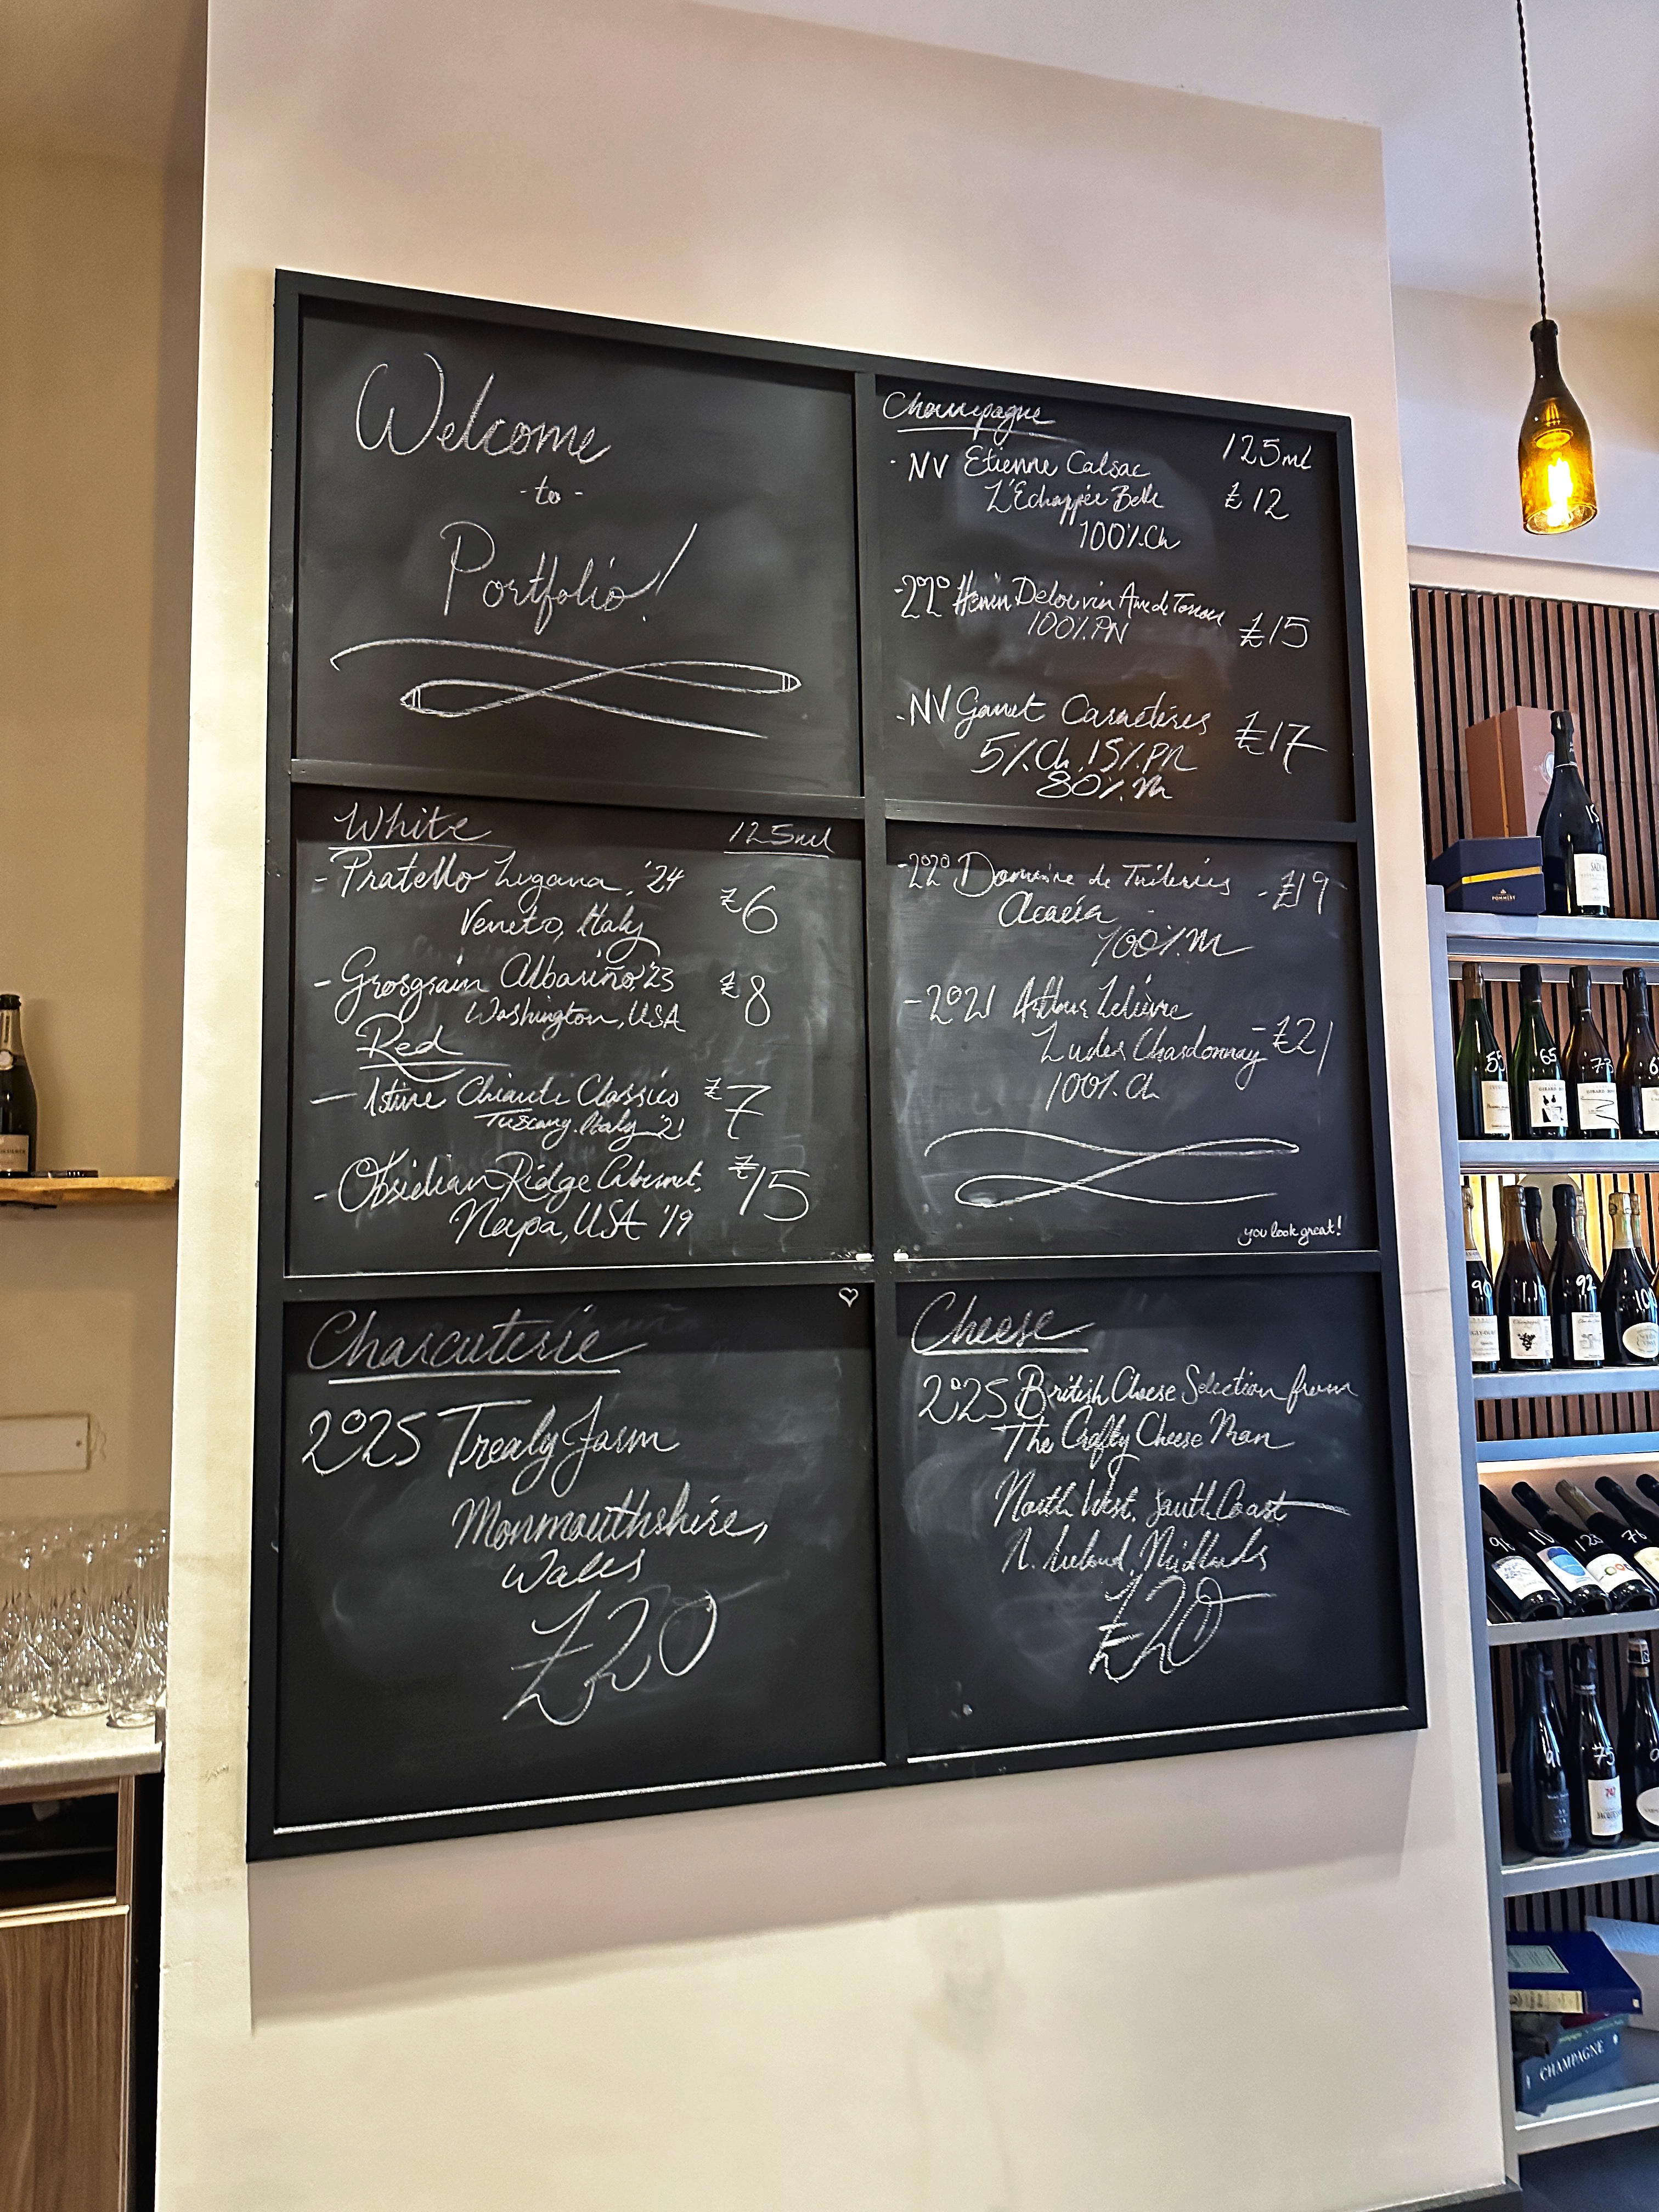 Welcome
-to-
Portfolio!
Champagne
125ml
· NV Etienne Calsac
L'Echappée Belle £12
100%.Ch
-2020 Henin Delouvin Ame de Terroir £15
100%.PN
-NV Gamet Carnetières £17
5%.Ch, 15%.PN
80%.M
White 125ml
- Pratello Lugana, '24 £6
Veneto, Italy
- Grosgrain Albariño, '23 £8
Washington, USA
Red
- Istine Chianti Classico £7
Tuscany, Italy '21
- Obsidian Ridge Cabernet, £15
Napa, USA '19
-2020 Domaine de Tuileries -£19
Acacia
100%.M
-2021 Arthur Lelièvre
Ludes Chardonnay -£21
100%.Ch
you look great!
Charcuterie
2025 Trealy Farm
Monmouthshire,
Wales
£20
Cheese
2025 British Cheese Selection from
The Crafty Cheese Man
North West, South Coast
N. Ireland, Midlands
£20
15
POMMERY
55
65
73
92
96
10
75
CHAMPAGNE